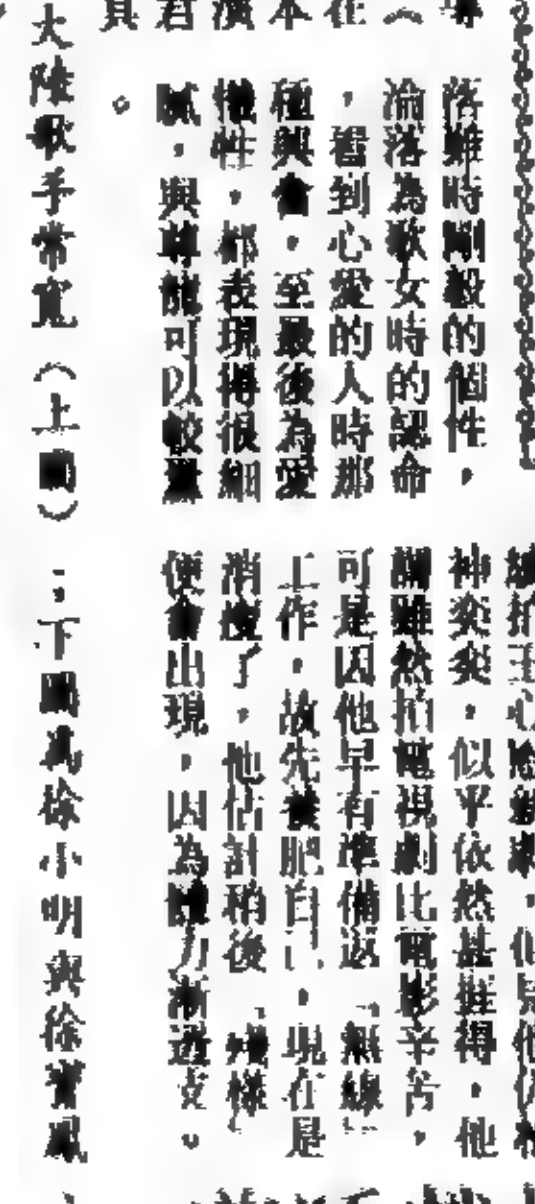 落難時剛毅的個性，
淪落為歌女時的認命
，看到心愛的人時那
種興奮，至最後為愛
犧牲，都表現得很細
膩，與尊龍可以較量
。
神奕奕，似乎依然甚捱得，他
謂雖然拍電視劇比電影辛苦，
可是因他早有準備返「無線」
工作，故先養肥自己，現在是
消瘦了，他估計稍後「殘樣」
便會出現，因為體力漸透支。
大陸歌手常寬（上圖）；下圖為徐小明與徐寶鳳